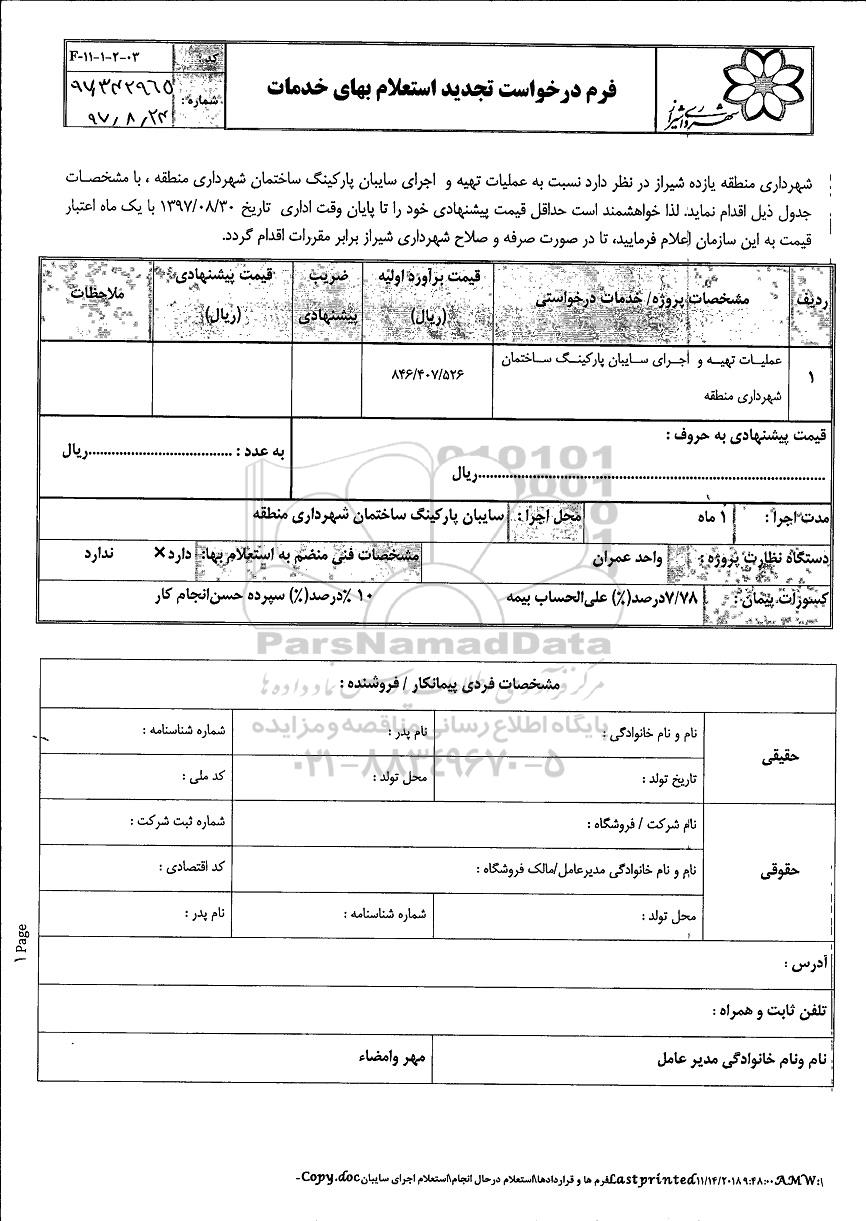 شهرداری شیراز
فرم درخواست تجدید استعلام بهای خدمات
کد :
F-۱۱-۱-۲-۰۳
شماره :
۹۷۳۴۲۹۶۵
۹۷/۸/۲۴
شهرداری منطقه یازده شیراز در نظر دارد نسبت به عملیات تهیه و اجرای سایبان پارکینگ ساختمان شهرداری منطقه ، با مشخصات
جدول ذیل اقدام نماید. لذا خواهشمند است حداقل قیمت پیشنهادی خود را تا پایان وقت اداری تاریخ ۱۳۹۷/۰۸/۳۰ با یک ماه اعتبار
قیمت به این سازمان اعلام فرمایید، تا در صورت صرفه و صلاح شهرداری شیراز برابر مقررات اقدام گردد.
ردیف
مشخصات پروژه/ خدمات درخواستی
قیمت برآورد اولیه
(ریال)
ضریب
پیشنهادی
قیمت پیشنهادی
(ریال)
ملاحظات
۱
عملیات تهیه و اجرای سایبان پارکینگ ساختمان
شهرداری منطقه
۸۴۶/۴۰۷/۵۲۶
قیمت پیشنهادی به حروف :
..........ریال
به عدد : ..........ریال
مدت اجرا : ۱ ماه
محل اجرا : سایبان پارکینگ ساختمان شهرداری منطقه
دستگاه نظارت پروژه : واحد عمران
مشخصات فنی منضم به استعلام بها: دارد× ندارد
کسورات پیمان : ۷/۷۸درصد(٪) علی‌الحساب بیمه ۱۰ ٪درصد(٪) سپرده حسن‌انجام کار
ParsNamadData
پایگاه اطلاع رسانی مناقصه و مزایده
۰۲۱-۸۸۳۴۹۶۷۰-۵
مشخصات فردی پیمانکار / فروشنده :
حقیقی
نام و نام خانوادگی : نام پدر : شماره شناسنامه :
تاریخ تولد : محل تولد : کد ملی :
حقوقی
نام شرکت / فروشگاه : شماره ثبت شرکت :
نام و نام خانوادگی مدیرعامل/مالک فروشگاه : کد اقتصادی :
محل تولد : شماره شناسنامه : نام پدر :
آدرس :
تلفن ثابت و همراه :
نام ونام خانوادگی مدیر عامل مهر وامضاء
۱ Page
Last printed ۱۱/۱۴/۲۰۱۸ ۹:۴۸:۰۰ AM W:\فرم ها و قراردادها\استعلام درحال انجام\استعلام اجرای سایبان - Copy.doc